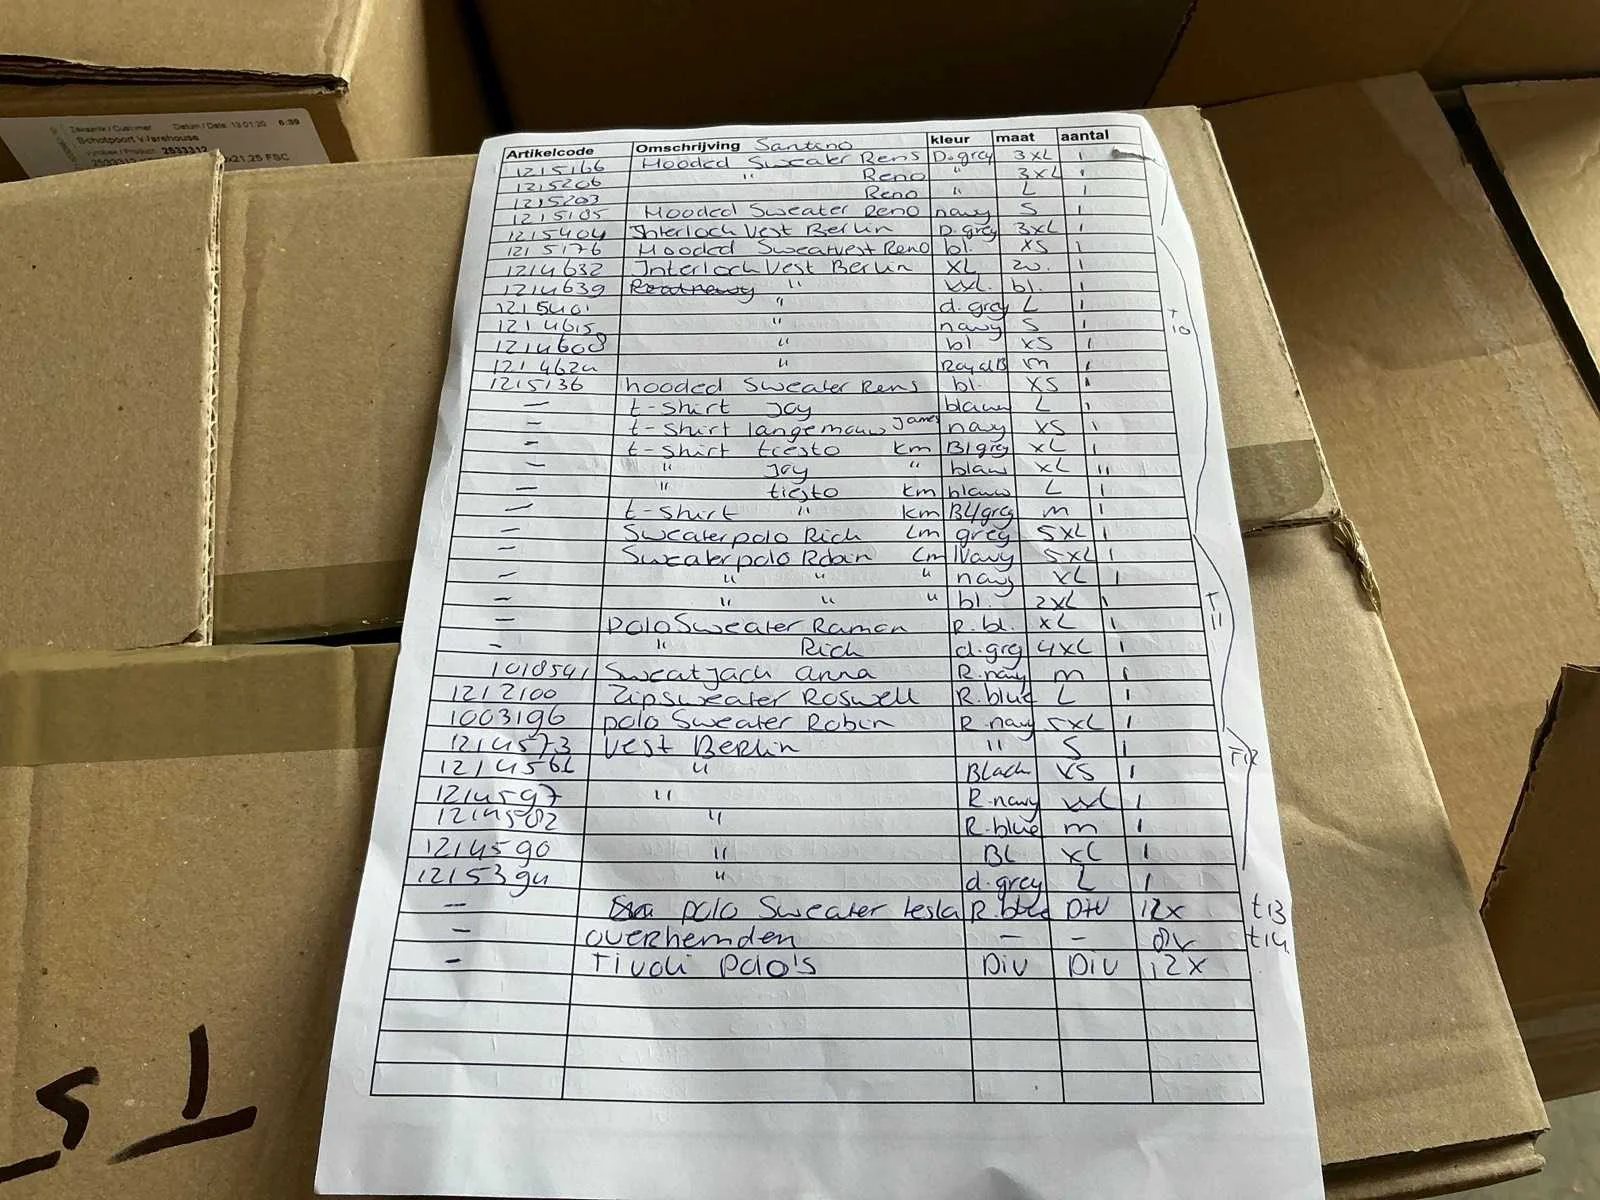 Zakaznik / Customer Datum / Date: 13.01.20 6:39
Schotpoort Warehouse
Vyrobek / Product: 2533312
2533312 x21,25 FSC
Artikelcode Omschrijving Santino kleur maat aantal
1215166 Hooded Sweater Rens D.grey 3XL 1
1215206 " Reno " 3XL 1
1215203 Reno " L 1
1215185 Hooded Sweater Reno navy S 1
1215404 Interloch Vest Berlin D.grey 3XL 1
1215176 Hooded Sweatvest Reno bl. XS 1
1214632 Interloch Vest Berlin XL zw. 1
1214639 " XXL. bl. 1
1215401 " d.grey L 1
1214615 " navy S 1
1214608 " bl XS 1
121462 " Royal B m 1
1215136 hooded Sweater Rens bl. XS 1
— t-shirt Joy blauw L 1
— t-shirt langemouw James navy XS 1
— t-shirt tiesto km Bl grey XL 1
— " Joy " blauw XL 11
— " tiesto km blauw L 1
— t-shirt " km Bl/grey m 1
— Sweaterpolo Rich Lm grey 5XL 1
— Sweaterpolo Robin Lm Navy 5XL 1
— " " " navy XL 1
— " " " bl. 2XL 1
— poloSweater Ramon R.bl. XL 1
— " Rich d.grey 4XL 1
1018541 Sweatjack anna R.navy m 1
1212100 Zipsweater Roswell R.blue L 1
1003196 polo Sweater Robin R.navy 5XL 1
1214573 Vest Berlin " S 1
1214561 " Black XS 1
1214597 " R.navy XXL 1
1214582 " R.blue m 1
1214590 " BL XL 1
1215394 " d.grey L 1
— polo Sweater tesla R.blue Div 12x t13
— overhemden — — t14
— Tivoli polo's Div Div 12x
T10
T11
T12
T 5